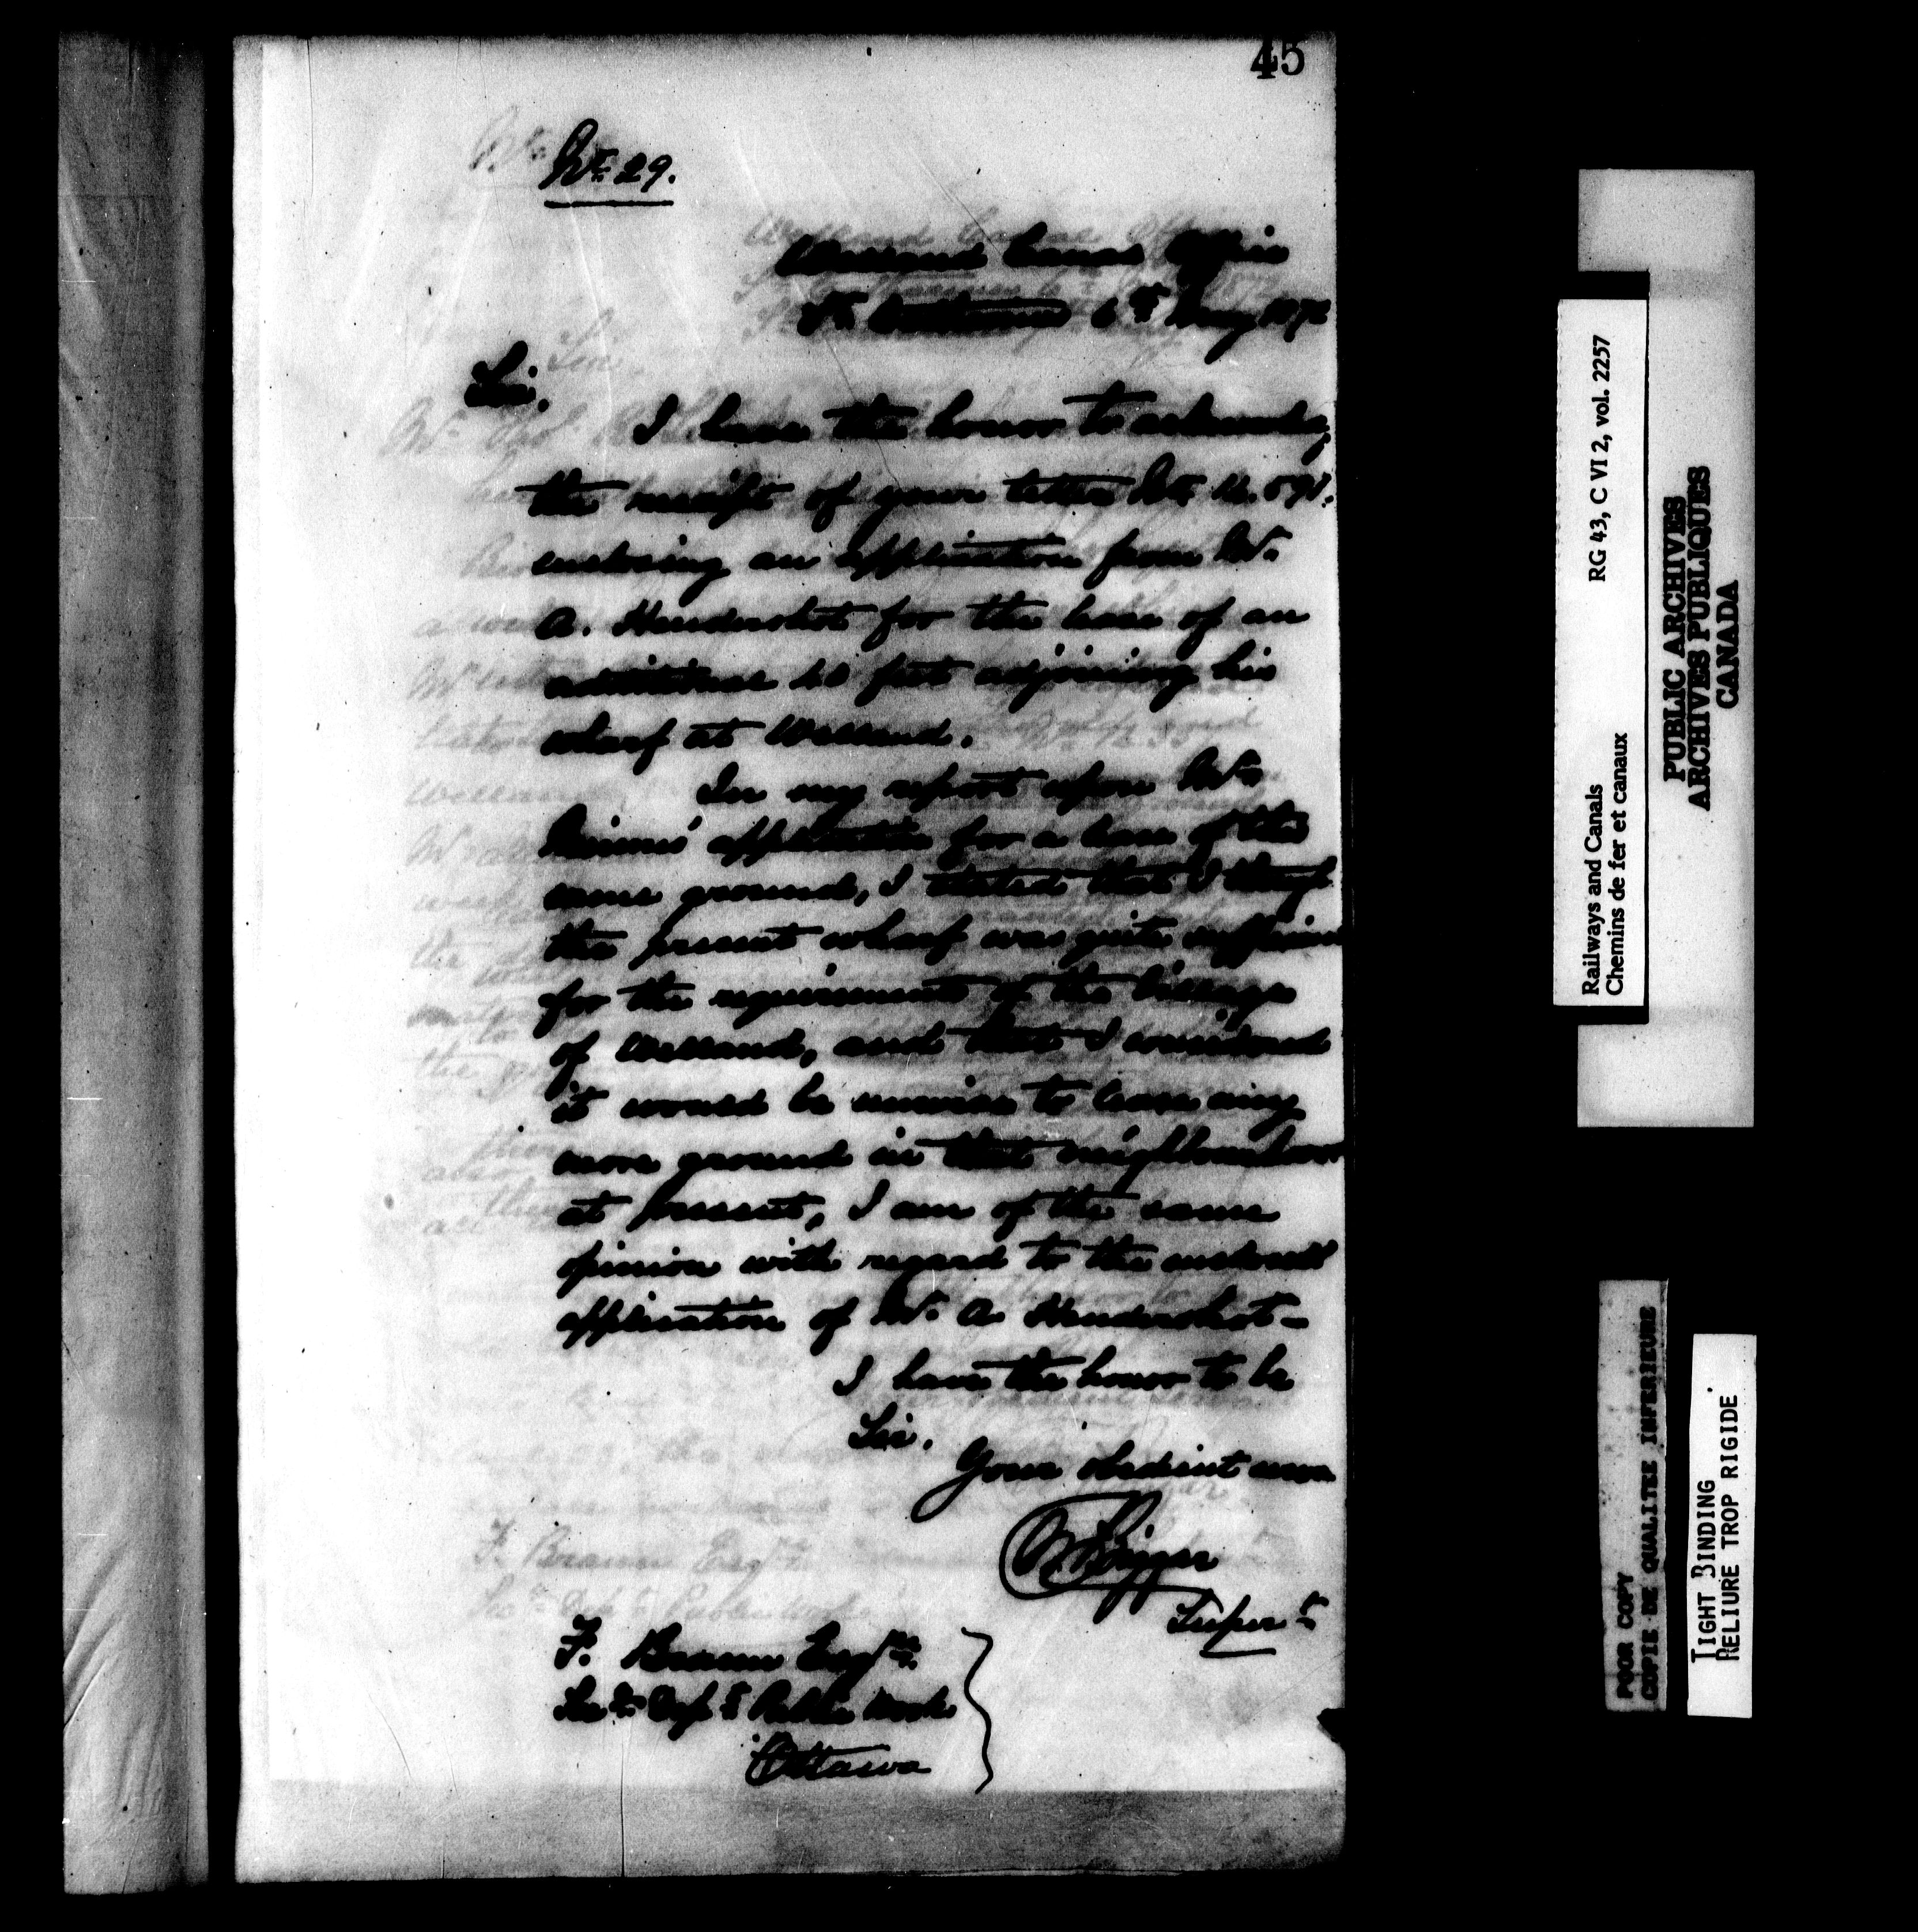 45
No. 29.
Welland Canal Office
St. Catharines 6th May 187
Sir,
I have the honor to acknowledg
the receipt of your letter No.
enclosing an application from Mr.
A. Hendershot for the lease of an
additional feet adjoining his
wharf at Welland.
In my report upon Mr.
application for a lease of this
same ground, I stated that I thought
the present wharf was quite sufficien
for the requirements of the Village
of Welland, and that I considered
it would be unwise to lease any
more ground in that neighbourhoo
at present, I am of the same
opinion with regard to the enclosed
application of Mr. A. Hendershot -
I have the honor to be
Sir.
Your obedient serva
Supert
F. Braun Esqre.
Secy. Dept. Public Works
Ottawa
Railways and Canals RG 43, C VI 2, vol. 2257
Chemins de fer et canaux
PUBLIC ARCHIVES
ARCHIVES PUBLIQUES
CANADA
POOR COPY
COPIE DE QUALITEE INFERIEURE
TIGHT BINDING
RELIURE TROP RIGIDE